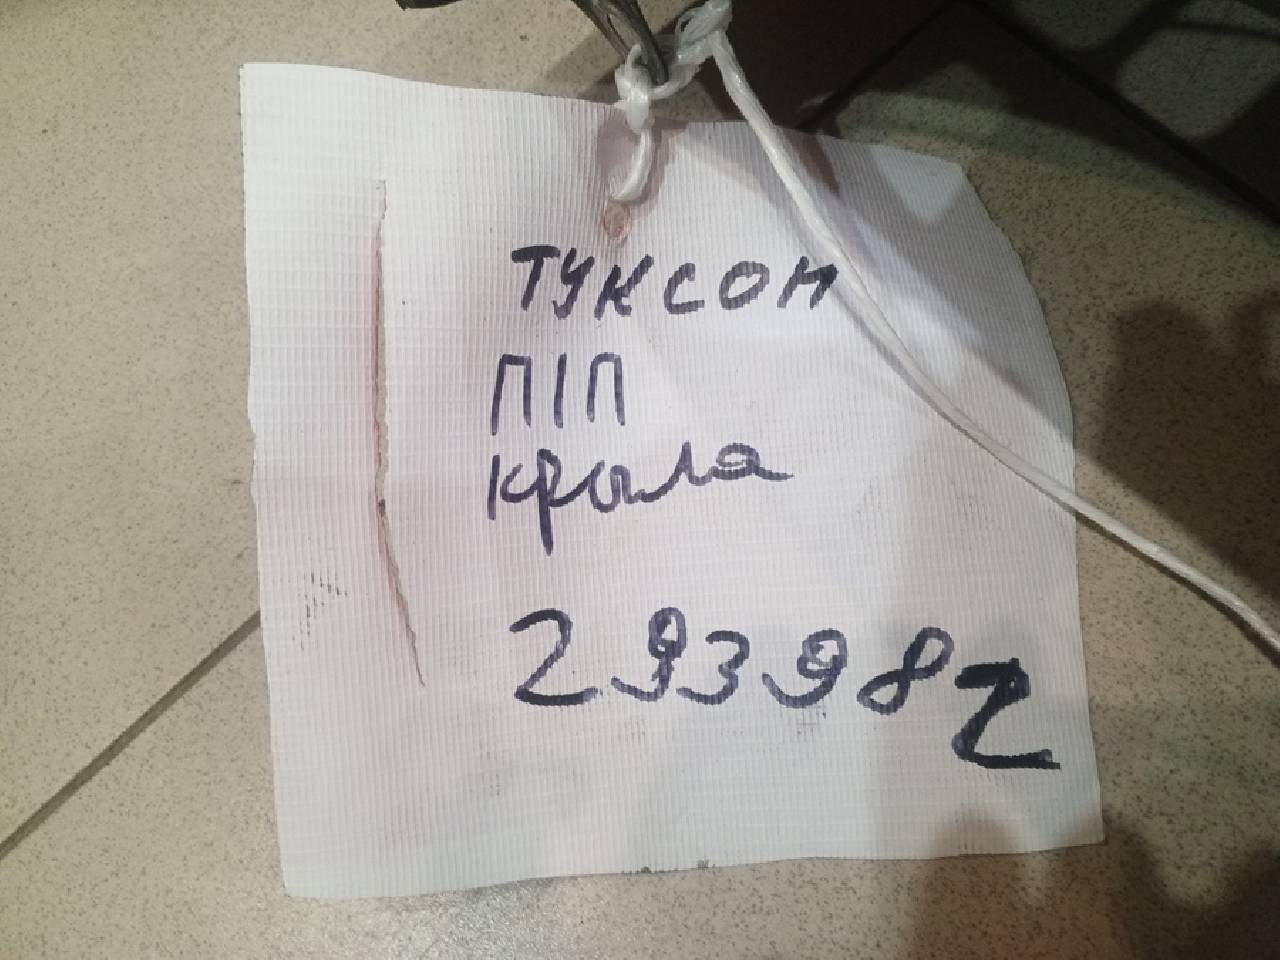 ТУКСОН
П/П
крыла
293982